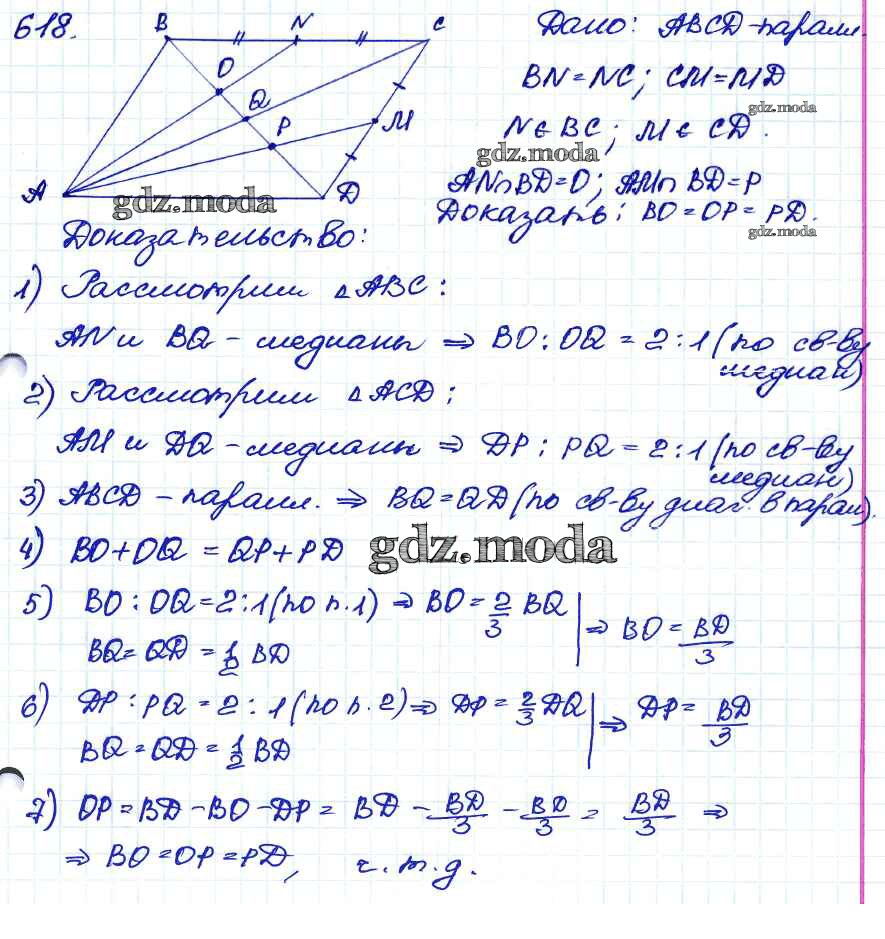 618.
B N C
O
Q
P
M
A
D
Дано: ABCD-паралл.
BN=NC; CM=MD
gdz.moda
N∈BC; M∈CD.
gdz.moda
AN∩BD=O; AM∩BD=P
gdz.moda
Доказать: BO=OP=PD.
gdz.moda
Доказательство:
1) Рассмотрим △ABC:
AN и BQ - медианы ⇒ BO:OQ = 2:1 (по св-ву
медиан)
2) Рассмотрим △ACD;
AM и DQ - медианы ⇒ DP:PQ = 2:1 (по св-ву
медиан)
3) ABCD - паралл. ⇒ BQ=QD (по св-ву диаг. в парал).
4) BO+OQ = QP+PD gdz.moda
5) BO:OQ=2:1 (по п.1) ⇒ BO=2/3 BQ | ⇒ BO = BD/3
BQ=QD=1/2 BD
6) DP:PQ=2:1 (по п.2) ⇒ DP=2/3 DQ | ⇒ DP= BD/3
BQ=QD=1/2 BD
7) OP=BD-BO-DP = BD - BD/3 - BD/3 = BD/3 ⇒
⇒ BO=OP=PD, ч.т.д.